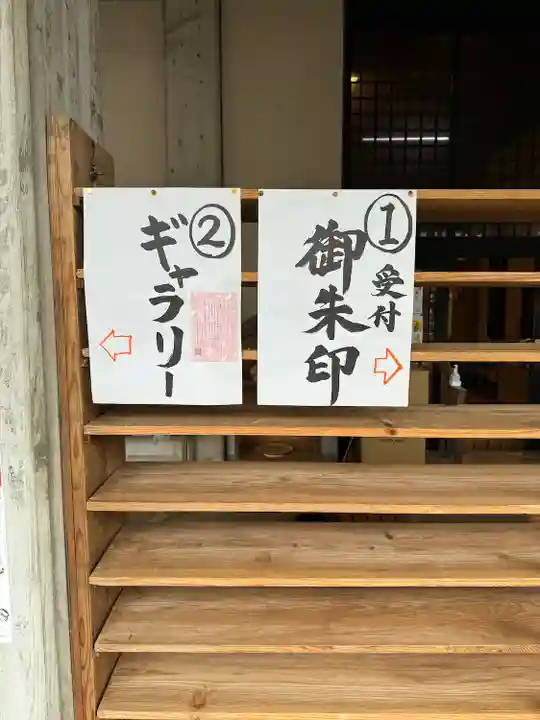 ①
受付
御朱印
②
ギャラリー